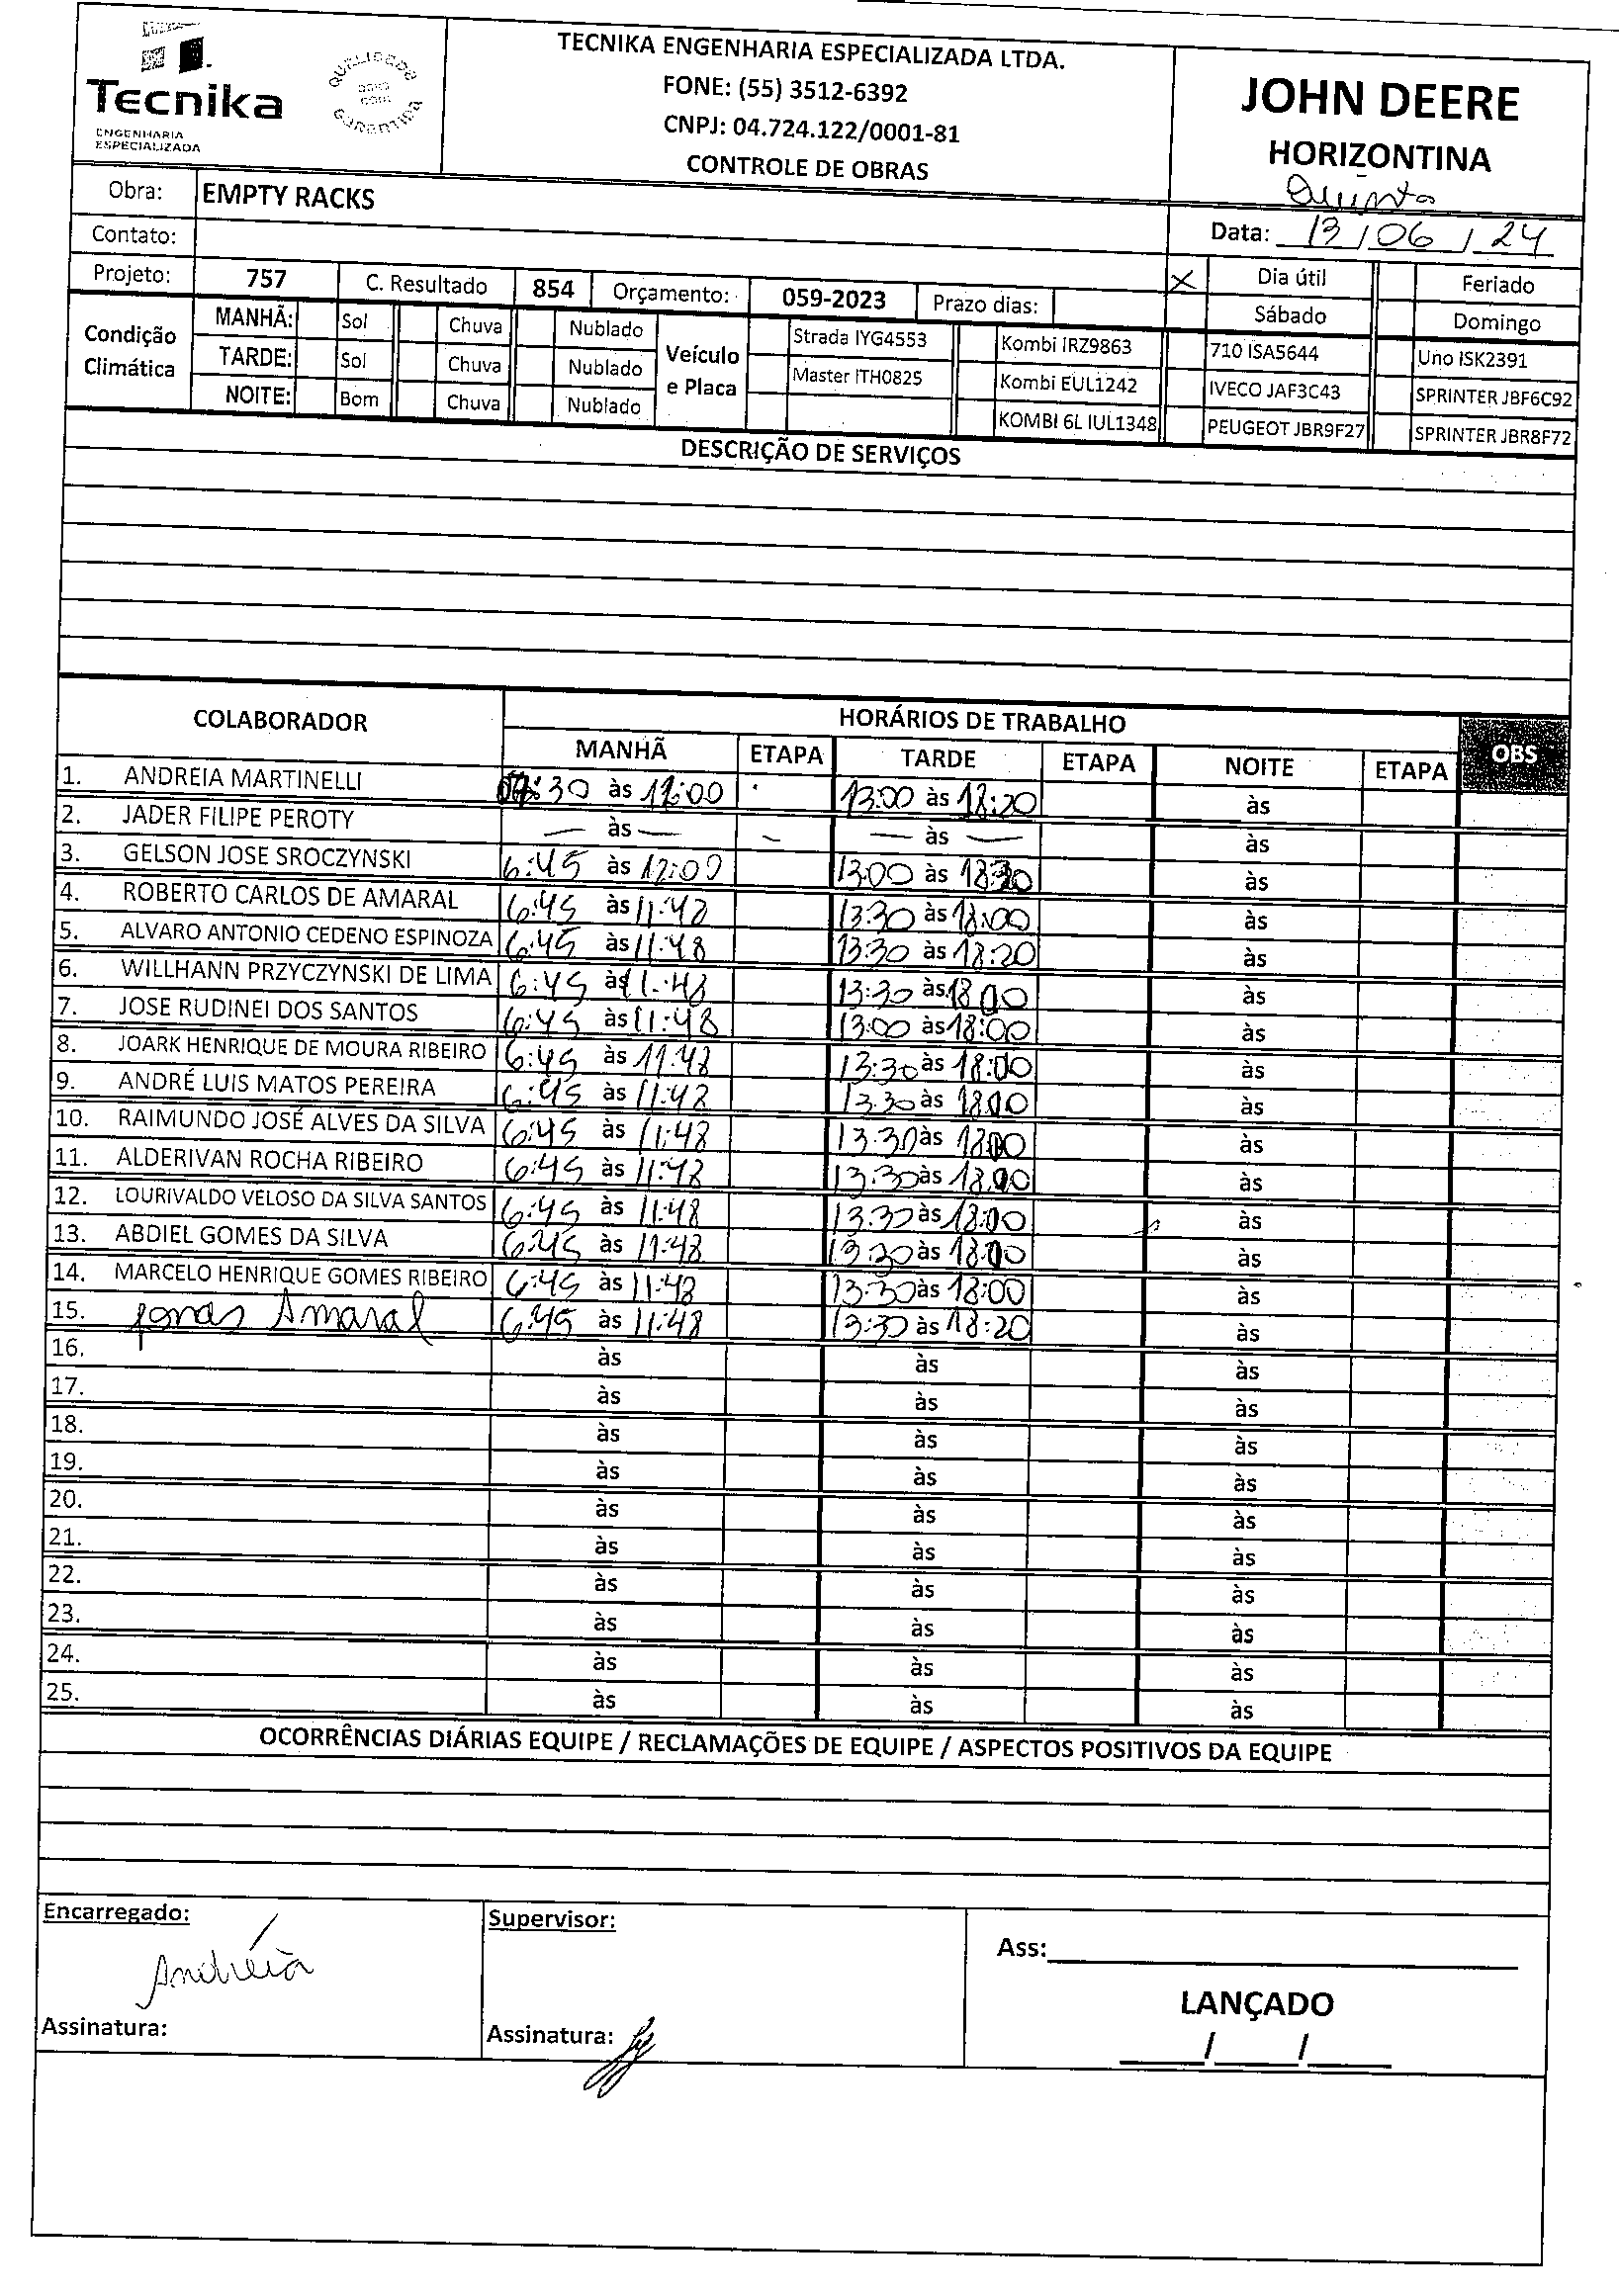 Tecnika
ENGENHARIA
ESPECIALIZADA
QUALIDADE
GARANTIDA
TECNIKA ENGENHARIA ESPECIALIZADA LTDA.
FONE: (55) 3512-6392
CNPJ: 04.724.122/0001-81
CONTROLE DE OBRAS
JOHN DEERE
HORIZONTINA
Quinta
Obra: EMPTY RACKS
Data: 13/06/24
Contato:
Projeto: 757 C. Resultado 854 Orçamento: 059-2023 Prazo dias: X Dia útil Feriado
Sábado Domingo
Condição Climática
MANHÃ: Sol Chuva Nublado
TARDE: Sol Chuva Nublado
NOITE: Bom Chuva Nublado
Veículo e Placa
Strada IYG4553 Kombi IRZ9863 710 ISA5644 Uno ISK2391
Master ITH0825 Kombi EUL1242 IVECO JAF3C43 SPRINTER JBF6C92
KOMBI 6L IUL1348 PEUGEOT JBR9F27 SPRINTER JBR8F72
DESCRIÇÃO DE SERVIÇOS
COLABORADOR HORÁRIOS DE TRABALHO OBS
MANHÃ ETAPA TARDE ETAPA NOITE ETAPA
1. ANDREIA MARTINELLI 07:30 às 12:00 13:00 às 18:20 às
2. JADER FILIPE PEROTY — às — — — às — às
3. GELSON JOSE SROCZYNSKI 6:45 às 12:00 13:00 às 18:30 às
4. ROBERTO CARLOS DE AMARAL 6:45 às 11:48 13:30 às 18:00 às
5. ALVARO ANTONIO CEDENO ESPINOZA 6:45 às 11:48 13:30 às 18:20 às
6. WILLHANN PRZYCZYNSKI DE LIMA 6:45 às 11:48 13:30 às 18:00 às
7. JOSE RUDINEI DOS SANTOS 6:45 às 11:48 13:00 às 18:00 às
8. JOARK HENRIQUE DE MOURA RIBEIRO 6:45 às 11:48 13:30 às 18:00 às
9. ANDRÉ LUIS MATOS PEREIRA 6:45 às 11:48 13:30 às 18:00 às
10. RAIMUNDO JOSÉ ALVES DA SILVA 6:45 às 11:48 13:30 às 18:00 às
11. ALDERIVAN ROCHA RIBEIRO 6:45 às 11:48 13:30 às 18:00 às
12. LOURIVALDO VELOSO DA SILVA SANTOS 6:45 às 11:48 13:30 às 18:00 às
13. ABDIEL GOMES DA SILVA 6:45 às 11:48 13:30 às 18:00 às
14. MARCELO HENRIQUE GOMES RIBEIRO 6:45 às 11:48 13:30 às 18:00 às
15. Jonas Amaral 6:45 às 11:48 13:30 às 18:20 às
16. às às às
17. às às às
18. às às às
19. às às às
20. às às às
21. às às às
22. às às às
23. às às às
24. às às às
25. às às às
OCORRÊNCIAS DIÁRIAS EQUIPE / RECLAMAÇÕES DE EQUIPE / ASPECTOS POSITIVOS DA EQUIPE
Encarregado: Supervisor:
Andréia
Ass:
LANÇADO
/ /
Assinatura: Assinatura: